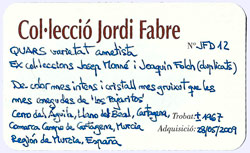 Col·lecció Jordi Fabre
Nº JFD12
QUARS varietat ametista
Ex col·leccions Josep Monné i Joaquim Folch (duplicats)
De color més intens i cristall més gruixut que les
més conegudes de "los Pajaritos"
Cerro del Águila, Llano del Beal, Cartagena,
Trobat: ± 1967
Comarca Campo de Cartagena, Murcia
Adquisició: 28/05/2009
Región de Murcia, España